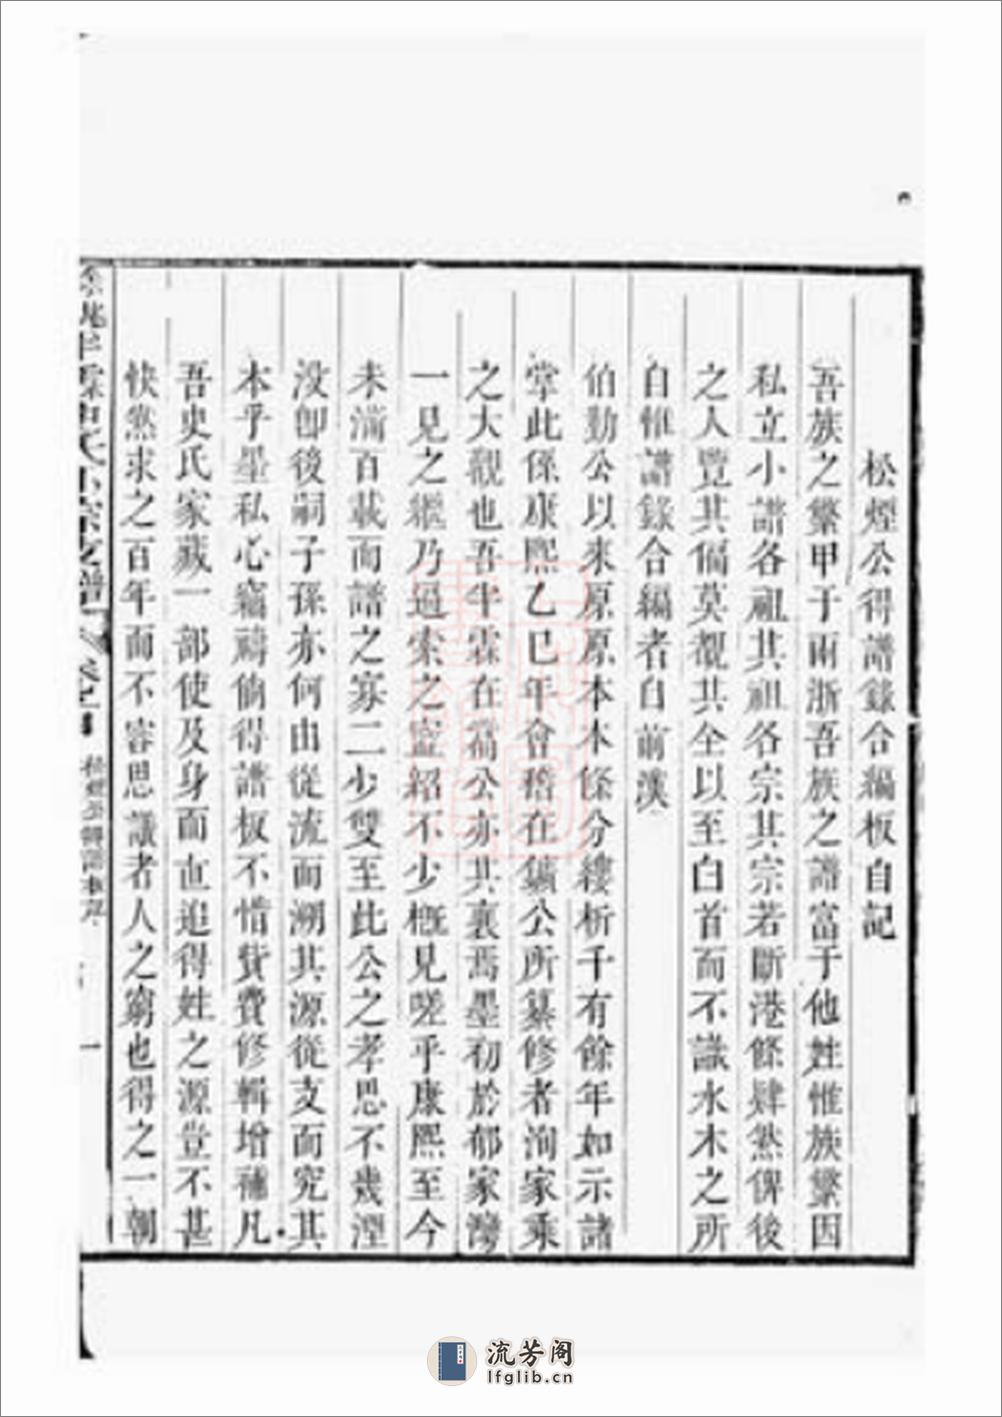 松煙公得譜錄合編板自記
吾族之繁甲于兩浙吾族之譜富于他姓惟族繁因
私立小譜各祖其祖各宗其宗若斷港條肄然俾後
之人覽其偏莫覩其全以至白首而不識水木之所
自惟譜錄合編者自前漢
伯勤公以來原原本本條分縷析千有餘年如示諸
掌此係康熙乙巳年會稽在鑛公所纂修者洵家乘
之大觀也吾半霖在篇公亦共襄焉墨初於郁家灣
一見之繼乃過索之寔紹不少概見嗟乎康熙至今
未滿百載而譜之寡二少雙至此公之孝思不幾湮
没卽後嗣子孫亦何由從流而溯其源從支而究其
本乎墨私心竊禱倘得譜板不惜貲費修輯增補凡
吾史氏家藏一部使及身而也追得姓之源豈不甚
快然求之百年而不容思議者人之窮也得之一朝
餘姚半霖史氏小宗支譜 卷 一
流芳阁
lfglib.cn